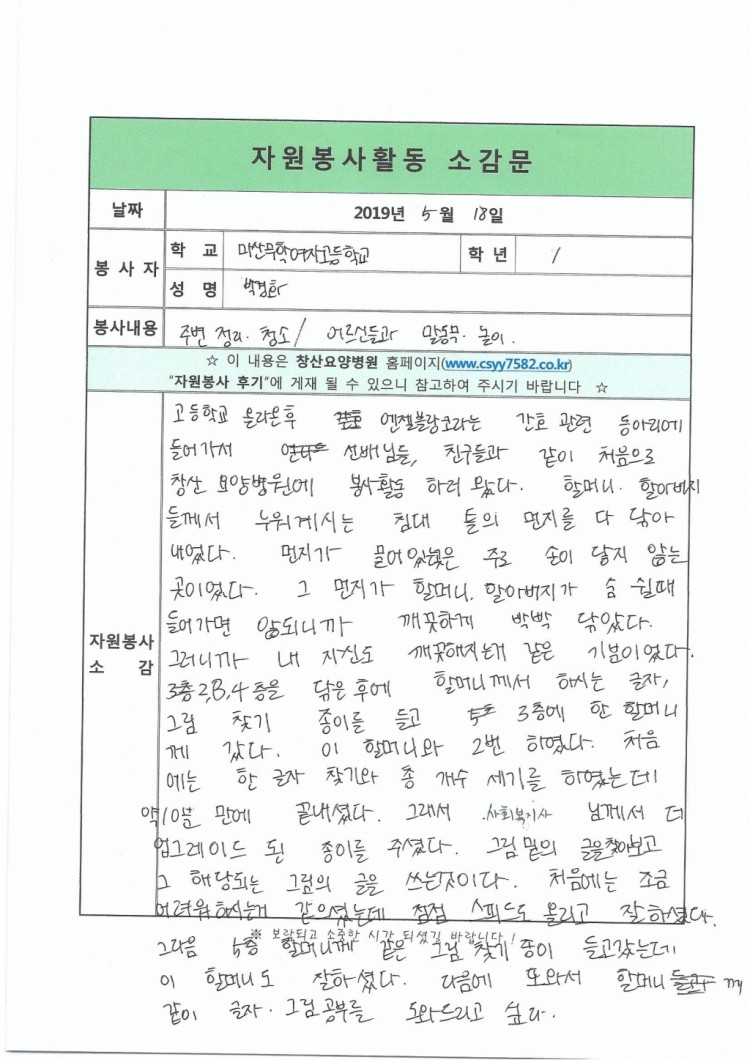 자원봉사활동 소감문
날짜 2019년 5월 18일
봉사자 학교 마산무학여자고등학교 학년 1
성명 박경화
봉사내용 주변 정리·청소/ 어르신들과 말동무·놀이.
☆ 이 내용은 창산요양병원 홈페이지(www.csyy7582.co.kr)
"자원봉사 후기"에 게재 될 수 있으니 참고하여 주시기 바랍니다 ☆
자원봉사 소감
고등학교 올라온후 엔젤블랑코라는 간호 관련 동아리에
들어가서 선배님들, 친구들과 같이 처음으로
창산 요양병원에 봉사활동 하러 왔다. 할머니·할아버지
들께서 누워계시는 침대 틀의 먼지를 다 닦아
내었다. 먼지가 끌어있는 곳은 주로 손이 닿지 않는
곳이었다. 그 먼지가 할머니, 할아버지가 숨 쉴때
들어가면 않되니까 깨끗하게 박박 닦았다.
그러니까 내 자신도 깨끗해지는게 같은 기분이었다.
3층 2,3,4층을 닦은 후에 할머니께서 하시는 글자,
그림 찾기 종이를 들고 3층에 한 할머니
께 갔다. 이 할머니와 2번 하였다. 처음
에는 한 글자 찾기와 총 개수 세기를 하였는데
약10분 만에 끝내셨다. 그래서 사회복지사 님께서 더
업그레이드 된 종이를 주셨다. 그림 밑의 글을 찾아보고
그 해당되는 그림의 글을 쓰는것이다. 처음에는 조금
어려워하시는게 같으셨는데 점점 스피드도 올리고 잘하셨다.
※ 보람되고 소중한 시간 되셨길 바랍니다!
그다음 5층 할머니께 같은 그림 찾기 종이 들고갔는데
이 할머니도 잘하셨다. 다음에 또와서 할머니
같이 글자·그림공부를 도와드리고 싶다.